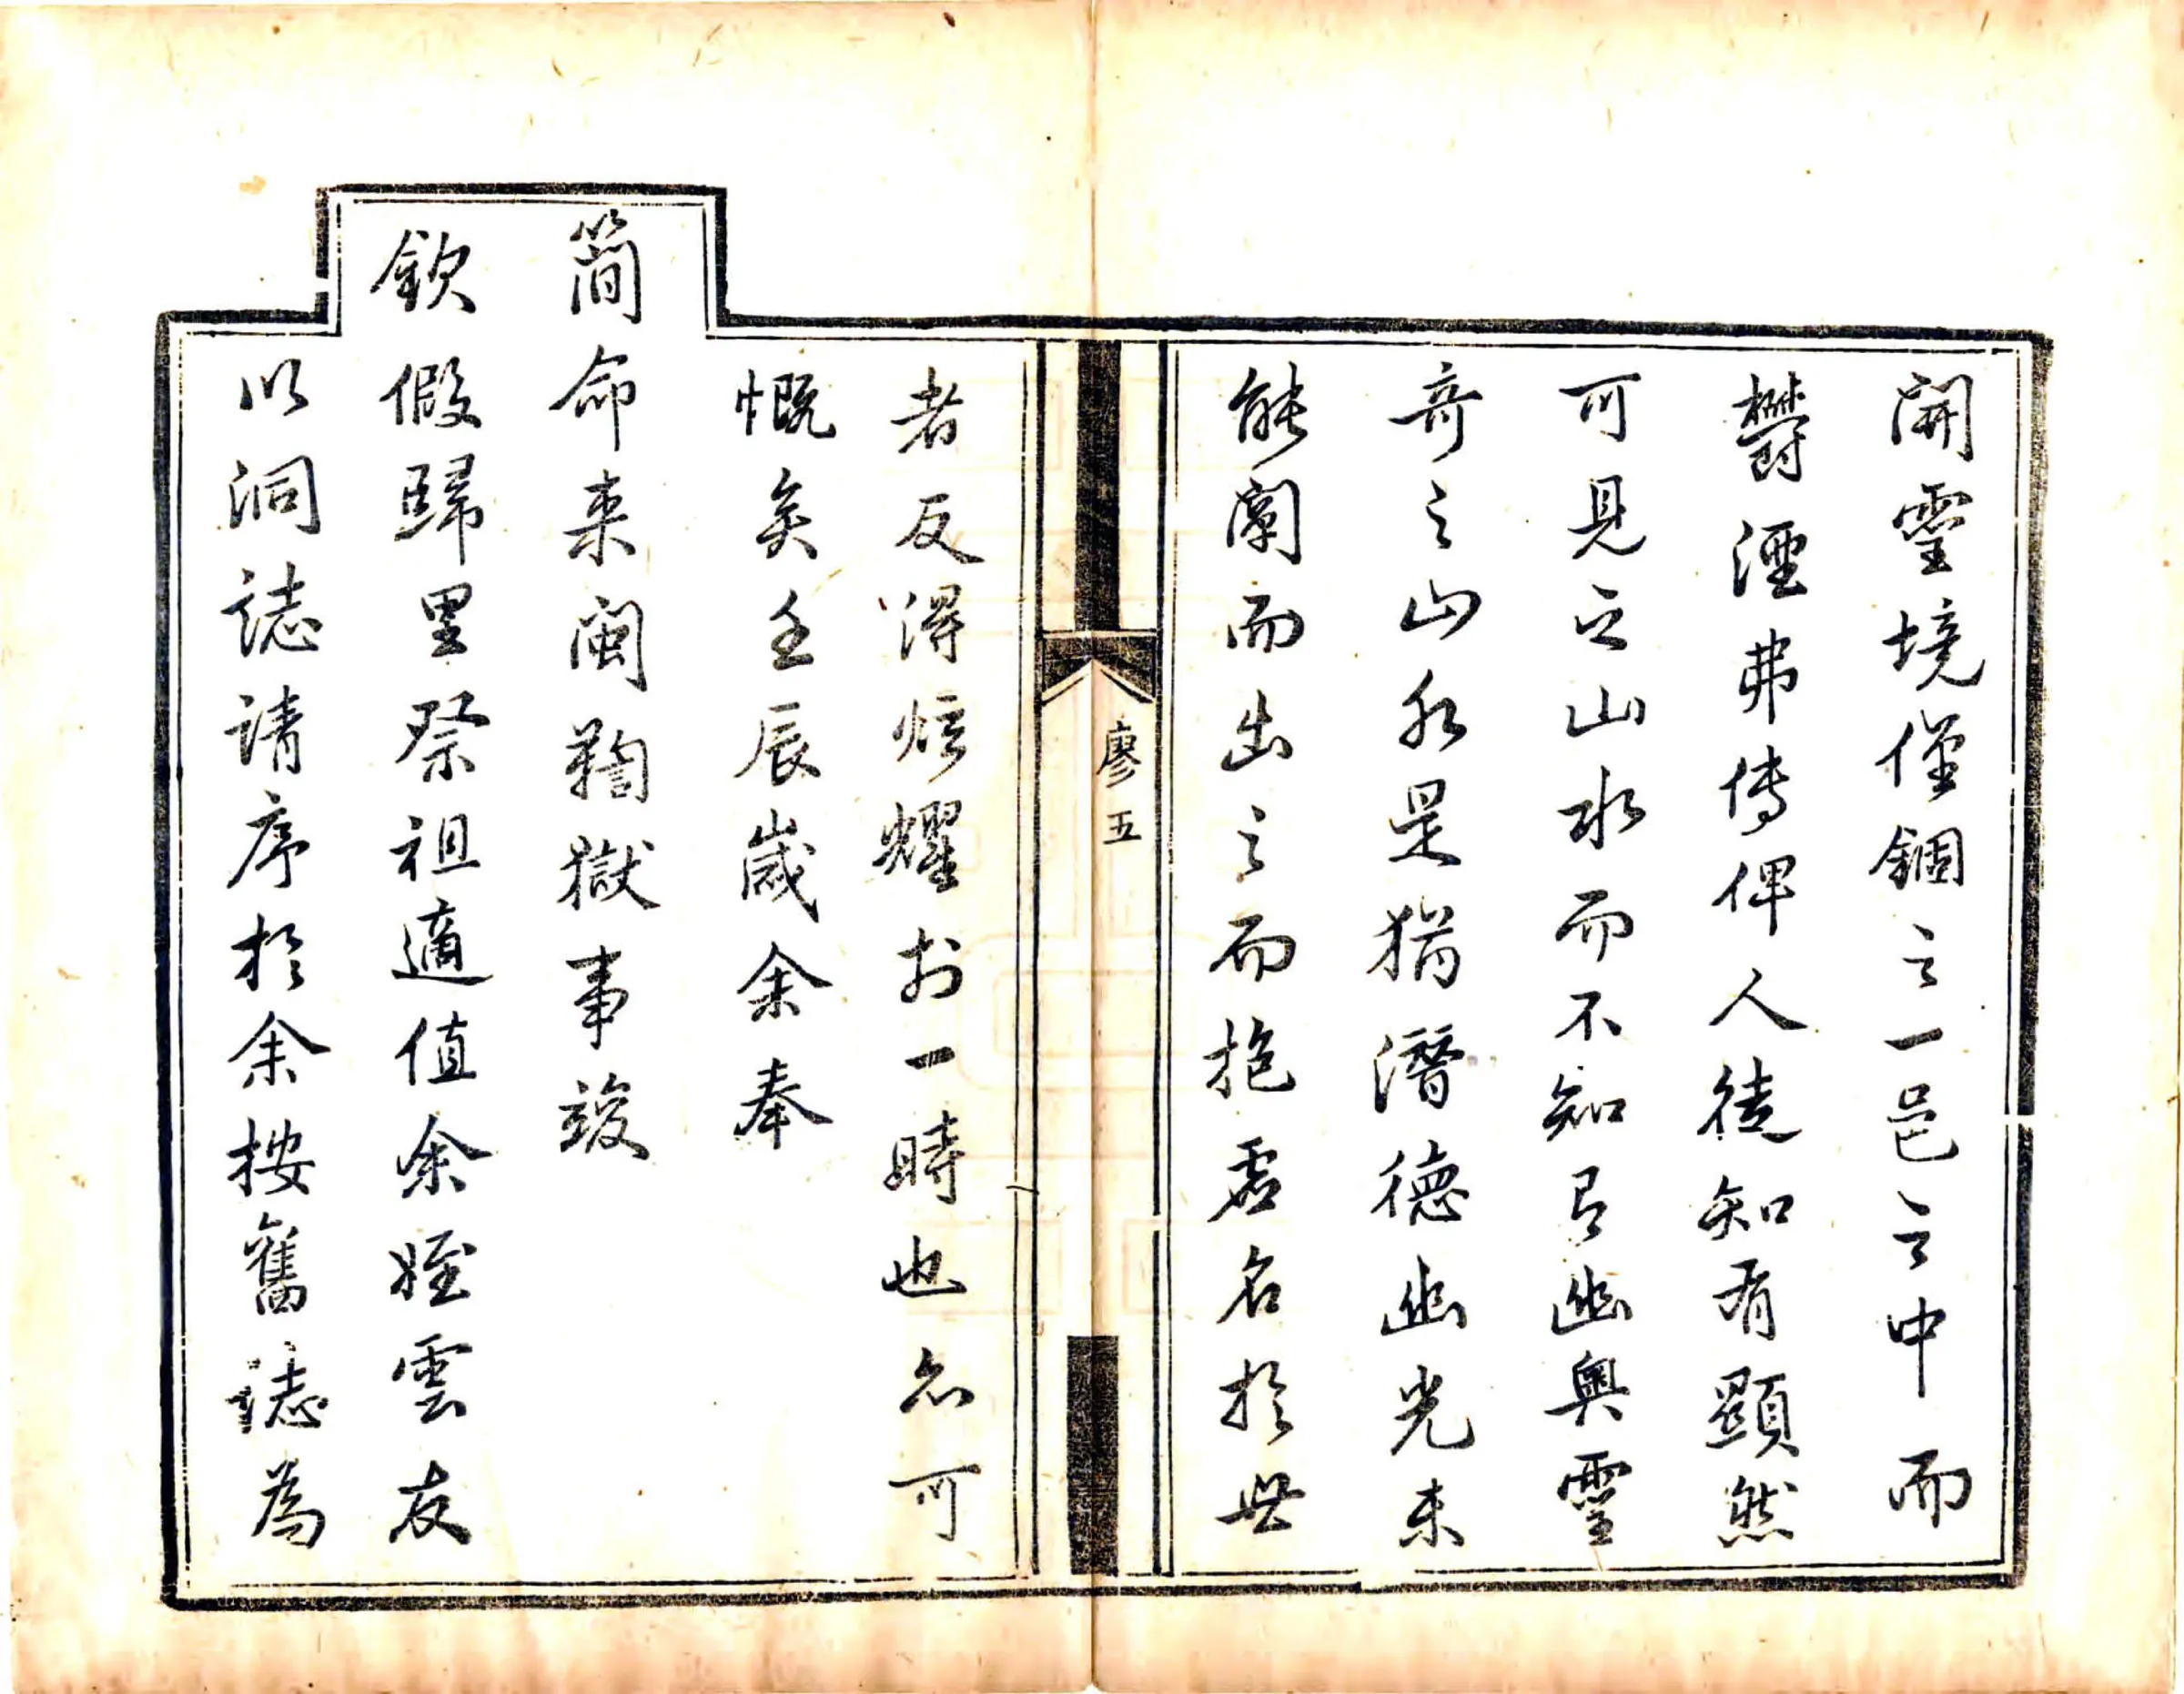 開靈境僅錮之一邑之中而
欝湮弗傳俾人徒知有顯然
可見之山水而不知有幽奧靈
奇之山水是猶潛德幽光未
能闡而出之而抱虛名於世
廖五
者反得炫耀於一時也亦可
慨矣壬辰歲余奉
簡命来閩鞫獄事竣
欽假歸里祭祖適值余姪雲友
以洞誌請序於余按舊誌為